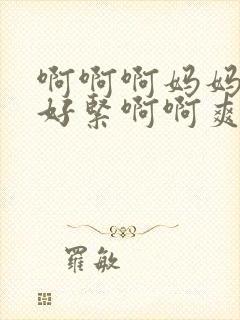 啊啊啊妈妈
好紧啊啊爽
羅敏